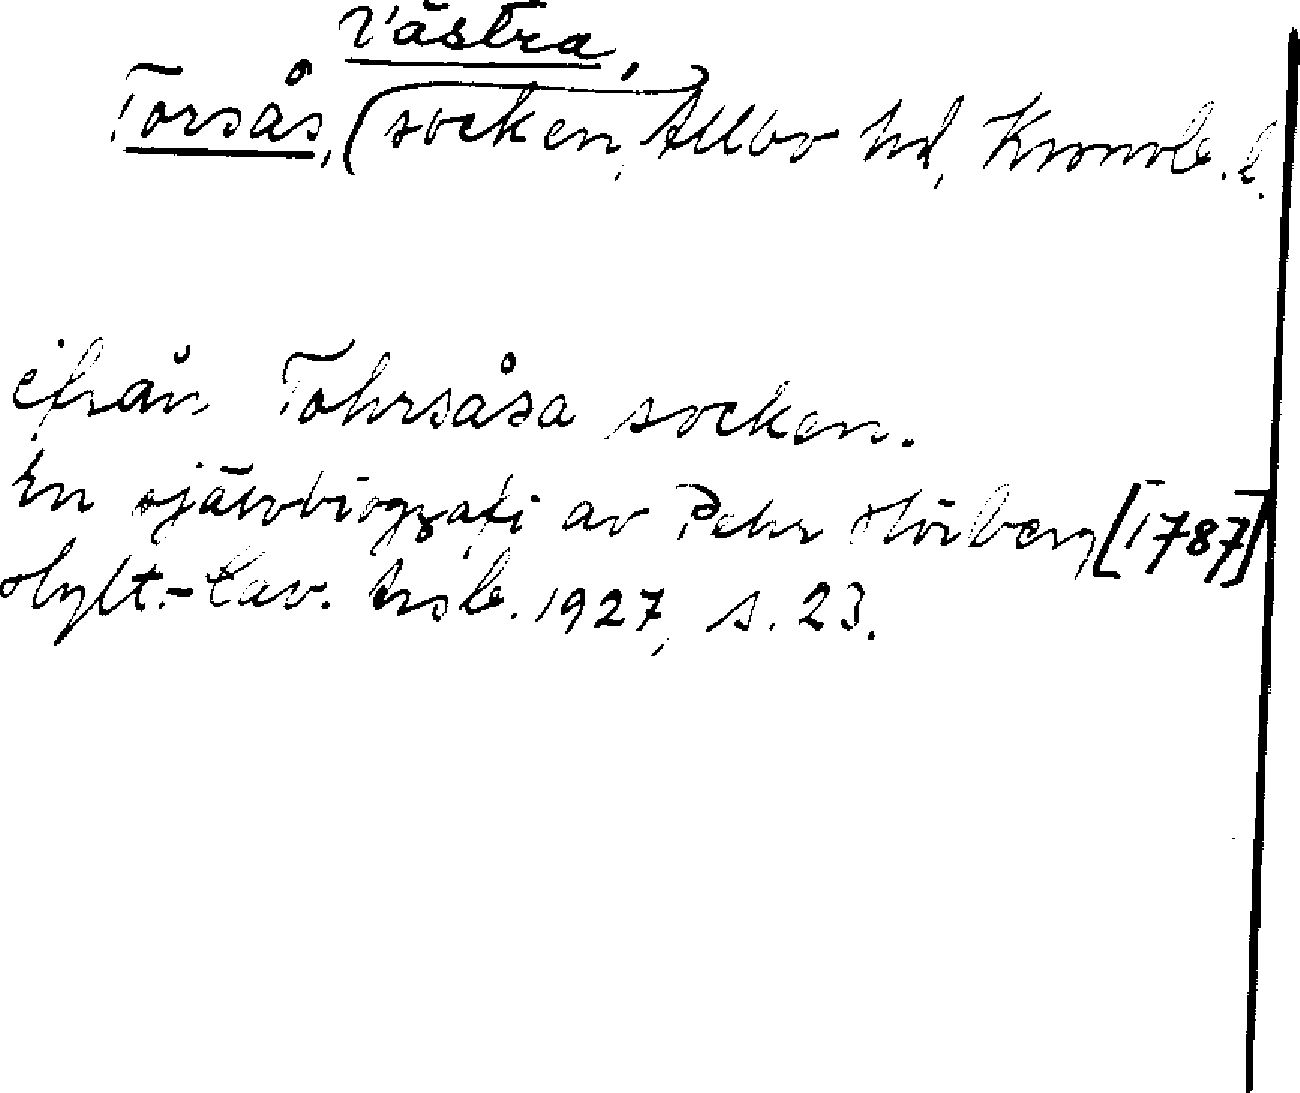 Västra,
Torsås, socken, Allbo hd, Kronob. l.
ifrån Tohrsåsa socken.
En självbiografi av Pehr Hörberg [1787]
Hylt.-Cav. årsb. 1927, s. 23.